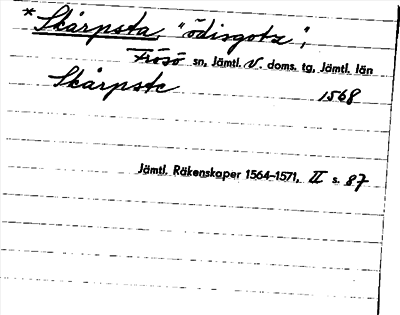 * Skärpsta, "ödisgotz";
Frösö sn, Jämtl. V. doms. tg, Jämtl. län
Skärpste 1568
Jämtl. Räkenskaper 1564-1571, II s. 87